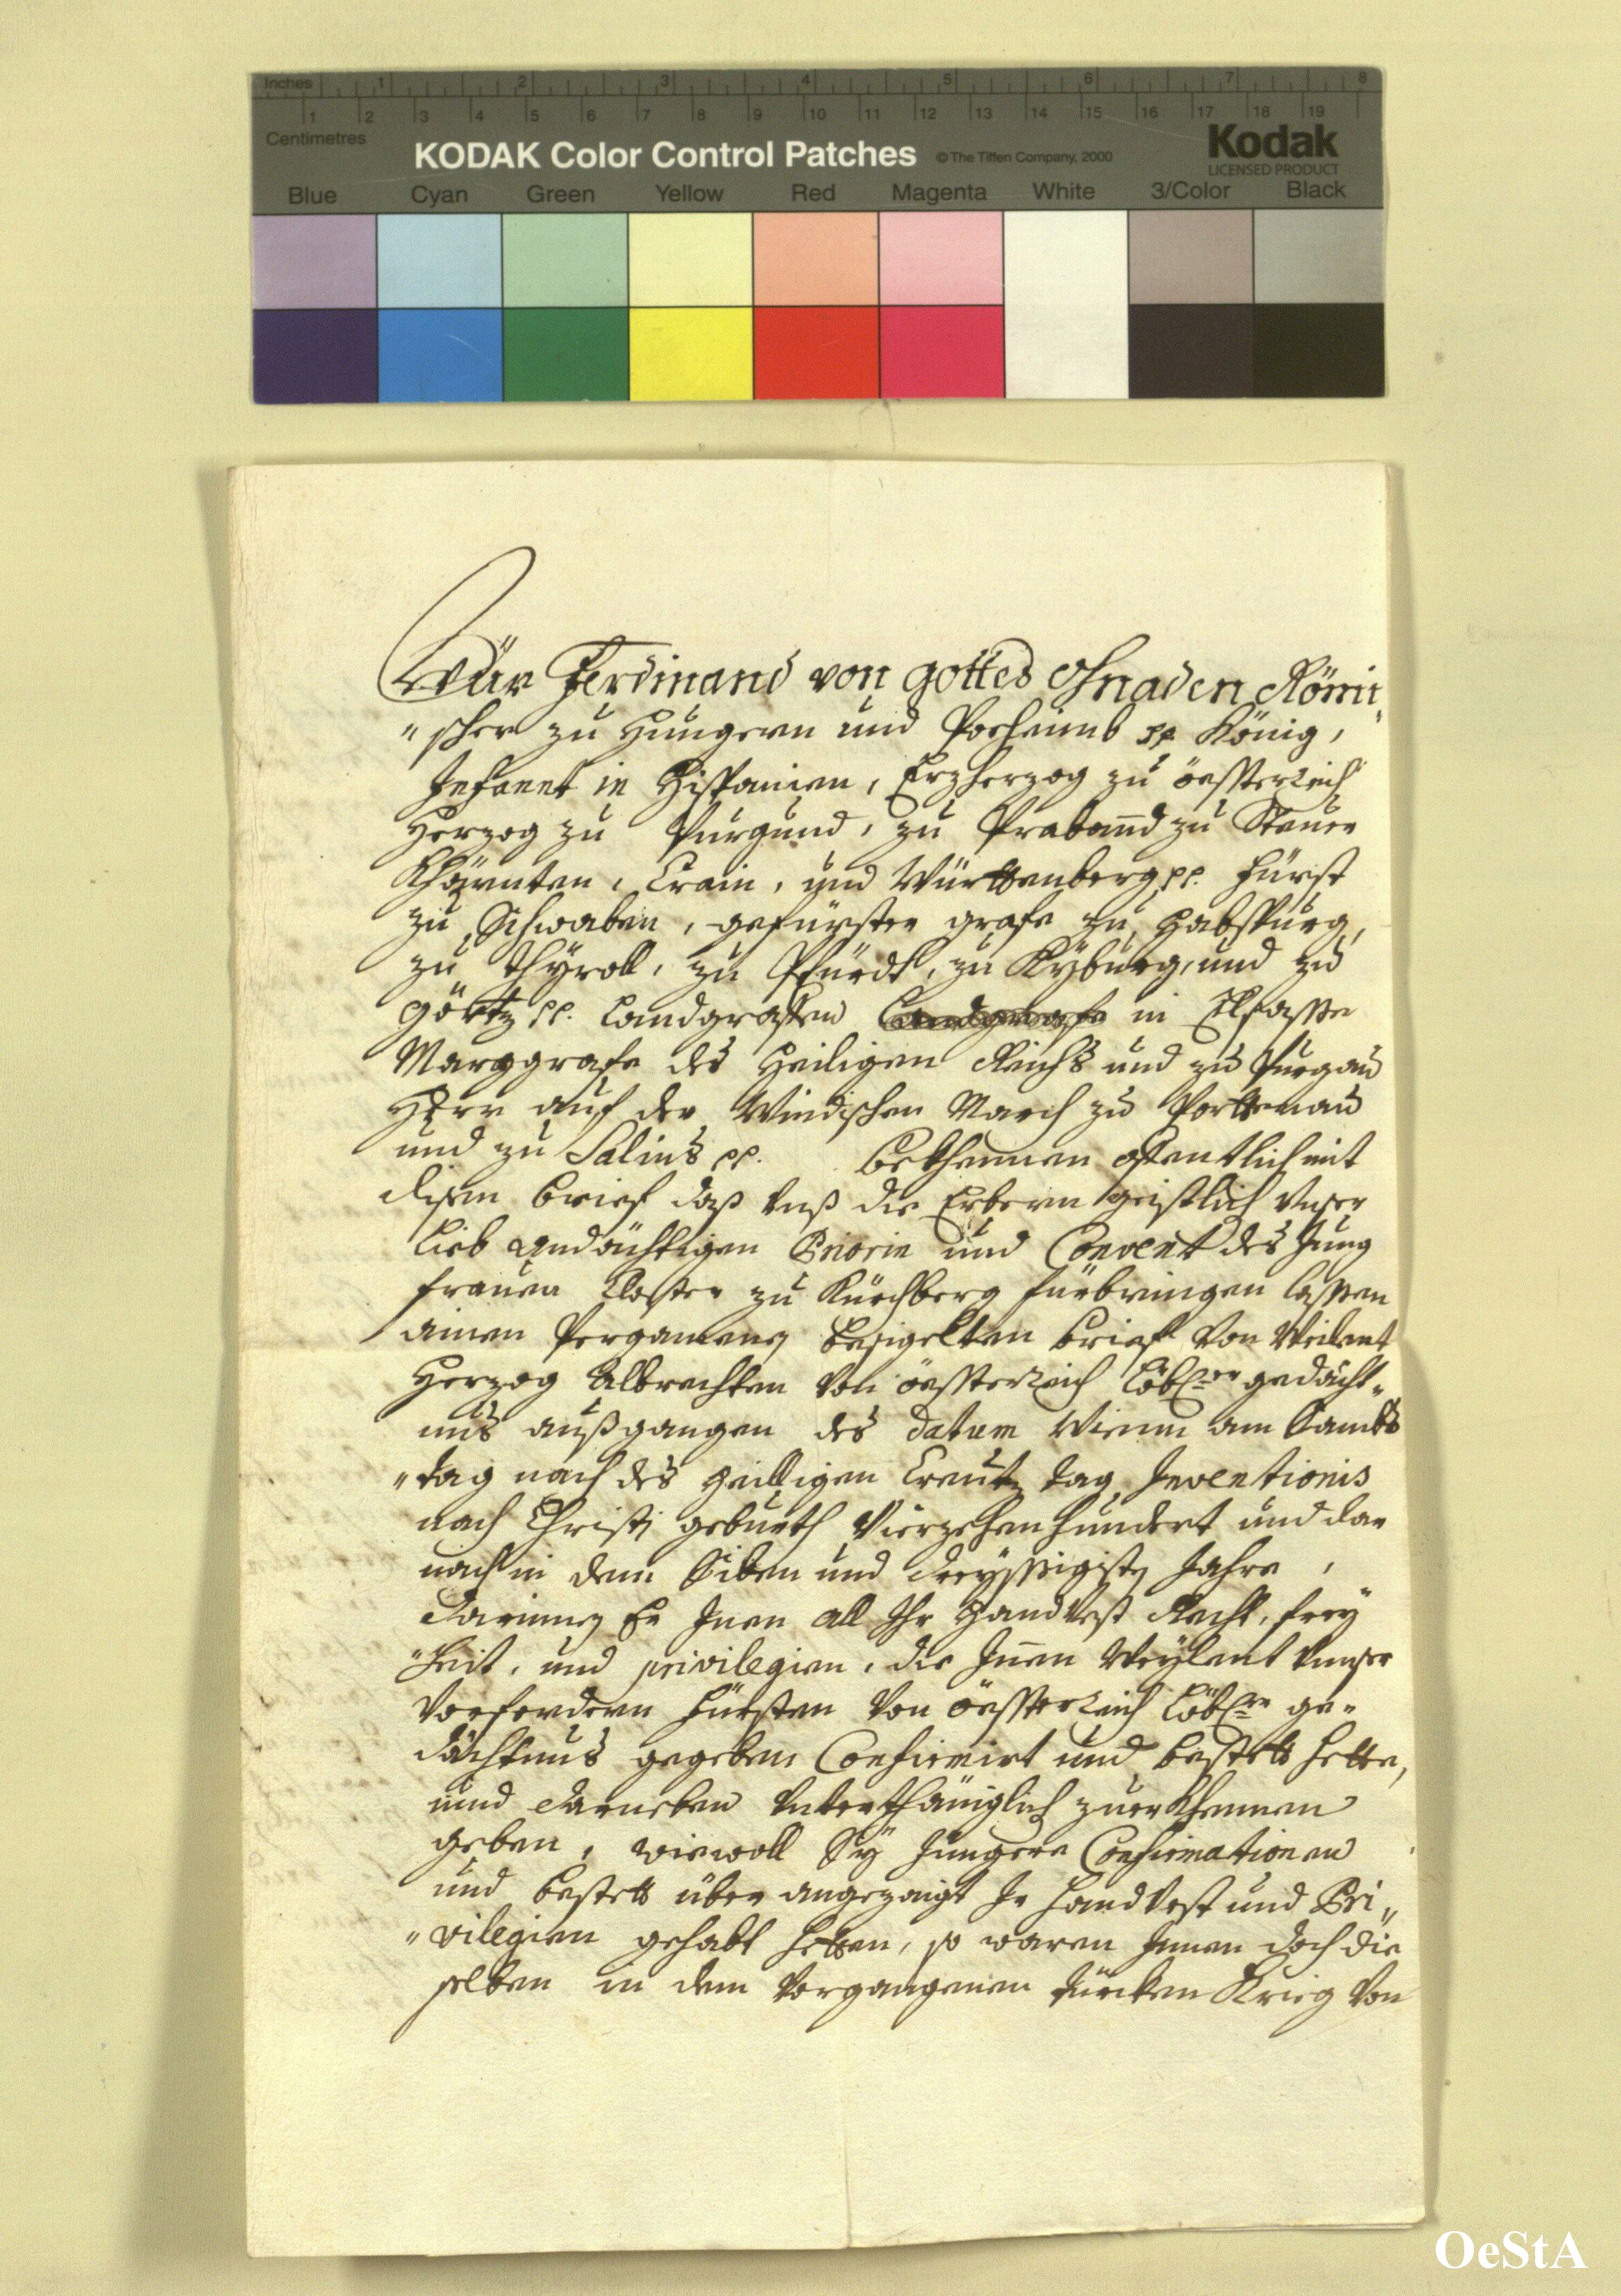 Inches 1 2 3 4 5 6 7 8
1 2 3 4 5 6 7 8 9 10 11 12 13 14 15 16 17 18 19
Centimetres
KODAK Color Control Patches © The Tiffen Company, 2000 Kodak
LICENSED PRODUCT
Blue Cyan Green Yellow Red Magenta White 3/Color Black
Wür Ferdinand von gottes Gnaden Römi„
„scher zu Hungern und Poeheimb pp König,
Infannt in Hispanien, Erzherzog zu össterreich
Herzog zu Purgund, zu Praband zu Steuer
Khärnten, Crain, und Württenberg pp. Fürst
zu Schwaben, gefürster grafe zu Habspurg,
zu Thÿroll, zu Pfürdt, zu Kÿburg, und zu
Görtz pp. Landgraffen in Elsasse
Marggrafe des Heiligen Reichs und zu Purgau
Herr auf der Windischen March zu Porttenau
und zu Salins pp. Bekhennen offentlich mit
disem brief daß Unß die Erbern geistlich Unser
Lieb andächtigen Priorin und Convent des Jung
frauen Closter zu Kürchberg fürbringen lassen
ainen Pergameneg besigelten brief von Weilent
Herzog Albrechten von össterreich Löbl:en gedächt„
nus außgangen des datum Wienn am Sambs
„tag nach des heilligen Creutz tag Inventionis
nach Christi geburth Vierzehenhundert und dar
nach in dem Siben und dreyssigisten Jahre,
darinnen Er Inen all Ihr Handvest Recht, frey
„heit, und privilegien, die Innen Weÿlent Unnser
Vorfordern Fürsten von össterreich Löbl:en ge„
dächtnus gegeben Confirmirt und bestett hette,
und darneben Unterthäniglich zuerkhennen
geben, wiewoll Sÿ Jungere Confirmationen
und bestett über angezaigt Ir Handvest und Pri„
„vilegien gehabt hetten, so waren Innen doch die
selben in dem Vorgangenen Türcken Krieg von
OeStA